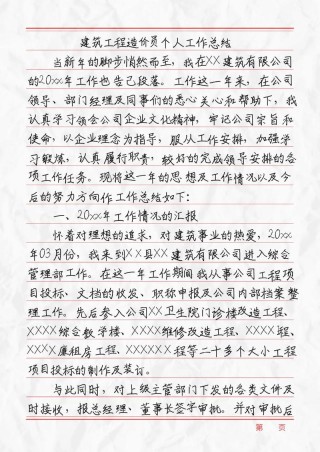 建筑工程造价员个人工作总结
当新年的脚步悄然而至，我在XX建筑有限公司
的20xx年工作也告己段落。工作这一年来，在公司
领导、部门经理及同事们的悉心关心和帮助下，我
认真学习领会公司企业文化精神，牢记公司宗旨和
使命，以企业理念为指导，服从工作安排，加强学
习锻炼，认真履行职责，较好的完成领导安排的各
项工作任务。现将这一年的思想及工作情况以及今
后的努力方向作工作总结如下：
一、20xx年工作情况的汇报
怀着对理想的追求，对建筑事业的热爱，20xx
年03月份，我来到XX县XX建筑有限公司进入综合
管理部工作。在这一年工作期间我从事公司工程项
目投标、文档的收发、职称申报及公司内部档案整
理工作。先后参入公司XX卫生院门诊楼改造工程、
XXXX综合教学楼、XXXX维修改造工程、XXXX程、
XXXX廉租房工程、XXXXX工程等二十多个大小工程
项目投标的制作及装订。
与此同时，对上级主管部门下发的各类文件及
时接收，报总经理、董事长签字审批。并对审批后
第 页